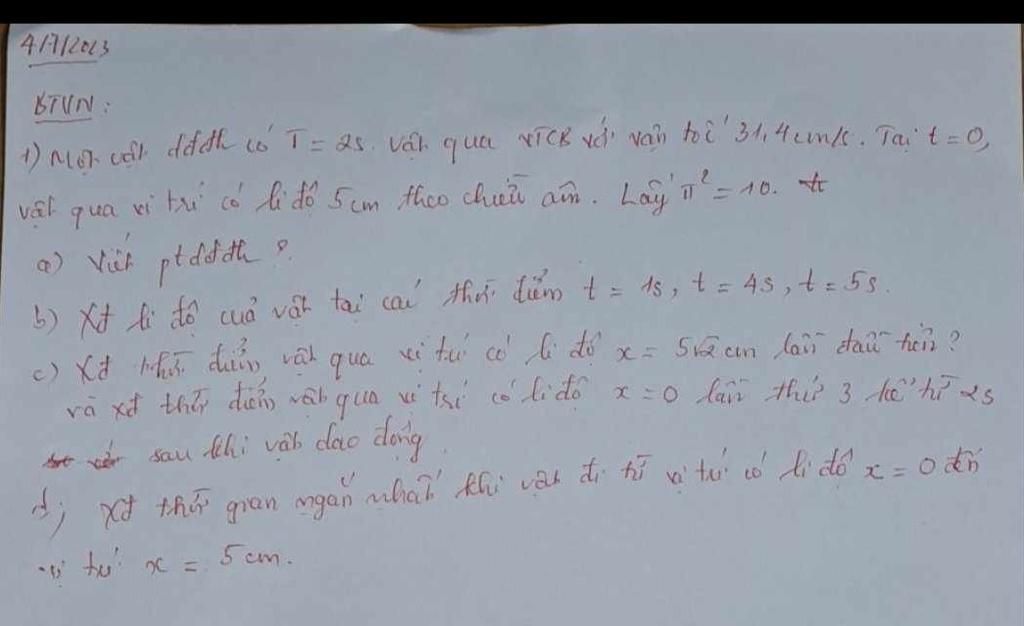 4/7/2023
BTVN:
1) Một vật dđđh có T = 2s. Vật qua VTCB với vận tốc 31,4cm/s. Tại t = 0,
vật qua vị trí có li độ 5cm theo chiều âm. Lấy π² = 10.
a) Viết ptdđđh?
b) Xđ li độ của vật tại các thời điểm t = 1s, t = 4s, t = 5s.
c) Xđ thời điểm vật qua vị trí có li độ x = 5√2 cm lần đầu tiên?
và xđ thời điểm vật qua vị trí có li độ x = 0 lần thứ 3 kể từ 2s
sau khi vật dao động.
d; Xđ thời gian ngắn nhất khi vật đi từ vị trí có li độ x = 0 đến
vị trí x = 5cm.